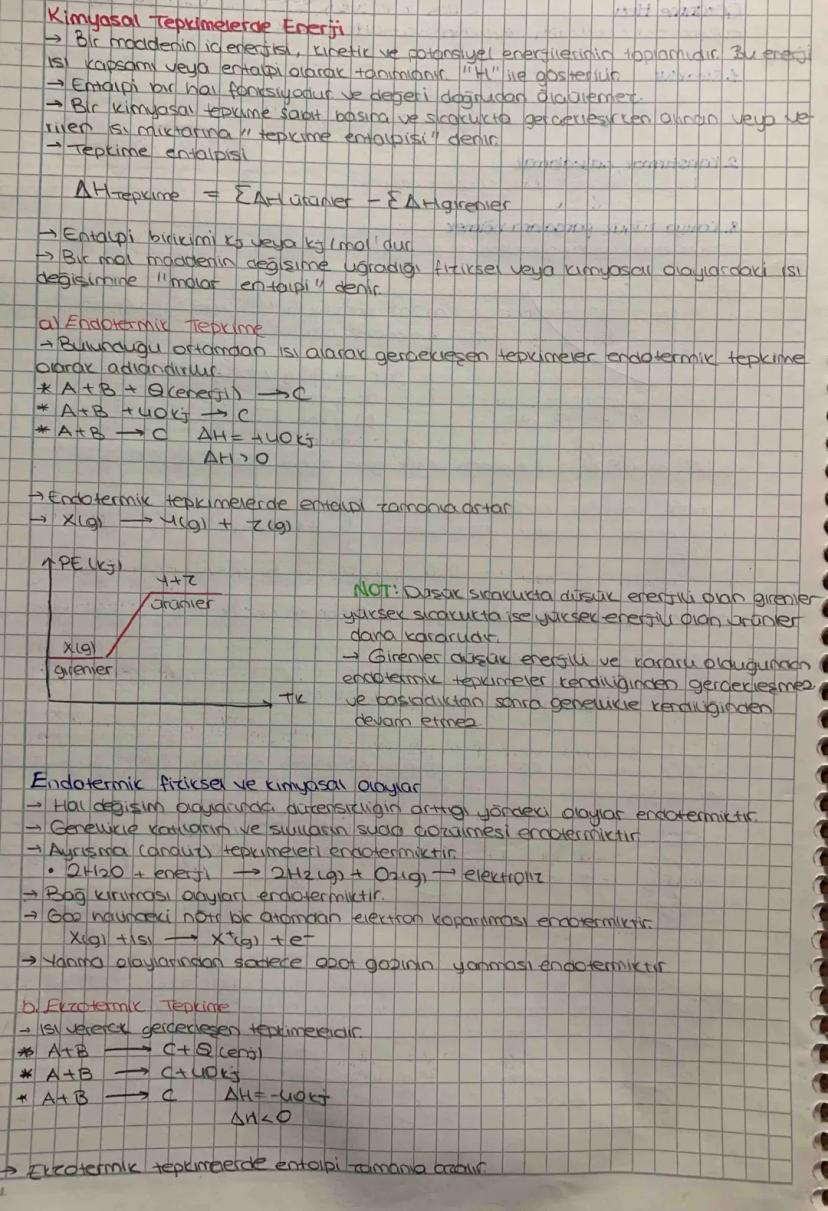 Kimyasal Tepkimelerde Enerji
→ Bir maddenin iç enerjisi, kinetik ve potansiyel enerjilerinin toplamıdır. Bu enerji
ısı kapsamı veya entalpi olarak tanımlanır. "H" ile gösterilir.
→ Entalpi bir hal fonksiyodur ve değeri doğrudan ölçülemez.
→ Bir kimyasal tepkime sabit basınç ve sıcaklıkta gerçekleşirken alınan veya ve-
rilen ısı miktarına "tepkime entalpisi" denir.
→ Tepkime entalpisi
ΔHtepkime = ΣΔHürünler - ΣΔHgirenler
→ Entalpi birikimi kj veya kj/mol'dur
→ Bir mol maddenin değişime uğradığı fiziksel veya kimyasal olaylardaki ısı
değişimine "molar entalpi" denir.
a) Endotermik Tepkime
→ Bulunduğu ortamdan ısı alarak gerçekleşen tepkimeler endotermik tepkime
olarak adlandırılır.
* A+B + Q(enerji) → C
* A+B +40kj → C
* A+B → C ΔH= +40kj
ΔH>0
→ Endotermik tepkimelerde entalpi zamanla artar
→ X(g) → Y(g) + Z(g)
PE (kj)
Y+Z
ürünler
X(g)
girenler
TK
NOT: Düşük sıcaklıkta düşük enerjili olan girenler
yüksek sıcaklıkta ise yüksek enerjili olan ürünler
daha kararlıdır.
→ Girenler düşük enerjili ve kararlı olduğundan
endotermik tepkimeler kendiliğinden gerçekleşmez
ve başladıktan sonra genellikle kendiliğinden
devam etmez
Endotermik fiziksel ve kimyasal olaylar
→ Hal değişim olaylarında düzensizliğin arttığı yöndeki olaylar endotermiktir.
→ Genellikle katıların ve sıvıların suda çözülmesi endotermiktir
→ Ayrışma (analiz) tepkimeleri endotermiktir.
• 2H2O + enerji → 2H2(g) + O2(g) → elektroliz
→ Bağ kırılması olayları endotermiktir.
→ Gaz halindeki nötr bir atomdan elektron koparılması endotermiktir.
X(g) +ısı → X⁺(g) +e⁻
→ Yanma olaylarından sadece azot gazının yanması endotermiktir
b. Ekzotermik Tepkime
→ Isı vererek gerçekleşen tepkimelerdir.
* A+B → C+Q(enrj)
* A+B → C+40kj
* A+B → C ΔH=-40kj
ΔH<0
→ Ekzotermik tepkimelerde entalpi zamanla azalır.